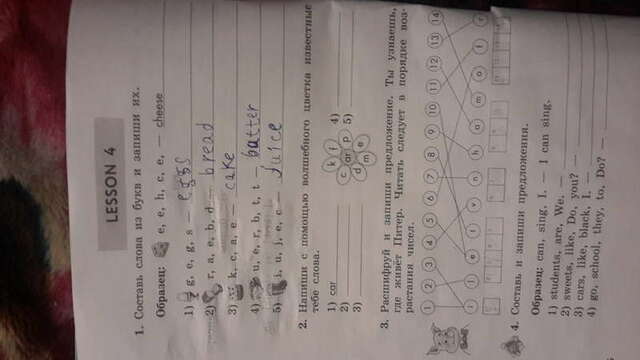 LESSON 4
1. Составь слова из букв и запиши их.
Образец: e, e, h, c, e, — cheese
1) g, e, g, s — eggs
2) r, a, e, b, d — bread
3) k, c, a, e — cake
4) u, e, r, b, t, t — butter
5) i, u, j, e, c — juice
2. Напиши с помощью волшебного цветка известные
тебе слова.
1) car 4)
2) 5)
3)
k f p e m d c ar
3. Расшифруй и запиши предложение. Ты узнаешь,
где живёт Питер. Читать следует в порядке воз-
растания чисел.
1 2 3 4 5 6 7 8 9 10 11 12 13 14
4. Составь и запиши предложения.
Образец: can, sing, I. — I can sing.
1) students, are, We. —
2) sweets, like, Do, you? —
3) cars, like, black, I. —
4) go, school, they, to, Do? —